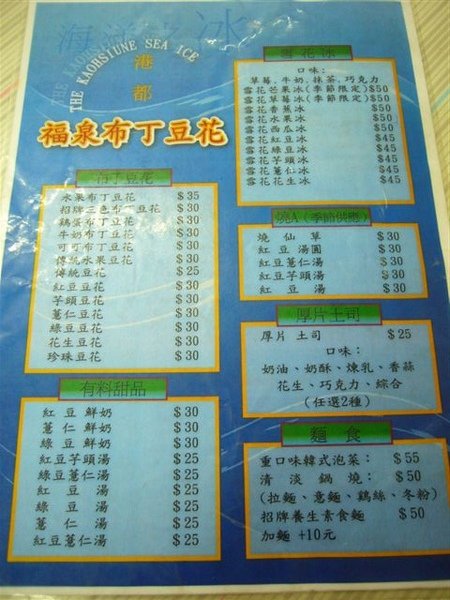 海洋之冰
THE KAOHSIUNE SEA ICE
THE KAOHSIUNE SEA ICE
港都
福泉布丁豆花
布丁豆花
水果布丁豆花 $35
招牌三色布丁豆花 $30
鷄蛋布丁豆花 $30
牛奶布丁豆花 $30
可可布丁豆花 $30
傳統水果豆花 $30
傳統豆花 $25
紅豆豆花 $30
芋頭豆花 $30
薏仁豆花 $30
綠豆豆花 $30
花生豆花 $30
珍珠豆花 $30
有料甜品
紅豆鮮奶 $30
薏仁鮮奶 $30
綠豆鮮奶 $30
紅豆芋頭湯 $25
綠豆薏仁湯 $25
紅豆湯 $25
綠豆湯 $25
薏仁湯 $25
紅豆薏仁湯 $25
雪花冰
口味:
草莓、牛奶、抹茶、巧克力
雪花芒果冰(季節限定)$50
雪花草莓冰(季節限定)$50
雪花香蕉冰 $50
雪花水果冰 $50
雪花西瓜冰 $50
雪花紅豆冰 $45
雪花綠豆冰 $45
雪花芋頭冰 $45
雪花花生冰 $45
燒A(季節供應)
燒仙草 $30
紅豆湯圓 $30
紅豆薏仁湯 $30
紅豆芋頭湯 $30
紅豆湯 $30
厚片土司
厚片土司 $25
口味:
奶油、奶酥、煉乳、香蒜
花生、巧克力、綜合
(任選2種)
麵食
重口味韓式泡菜: $55
清淡鍋燒: $50
(拉麵、意麵、鷄絲、冬粉)
招牌養生素食麵 $50
加麵 +10元